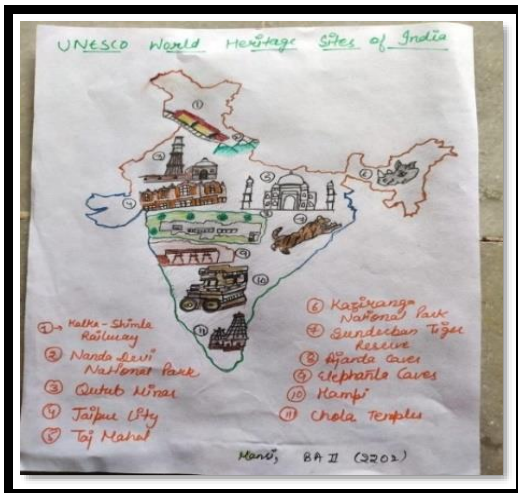 UNESCO World Heritage Sites of India
① → Kalka-Shimla
Railway
② Nanda Devi
National Park
③ Qutub Minar
④ Jaipur City
⑤ Taj Mahal
⑥ Kaziranga
National Park
⑦ Sunderban Tiger
Reserve
⑧ Ajanta Caves
⑨ Elephanta Caves
⑩ Hampi
⑪ Chola Temples
Mansi, BA II (2202)